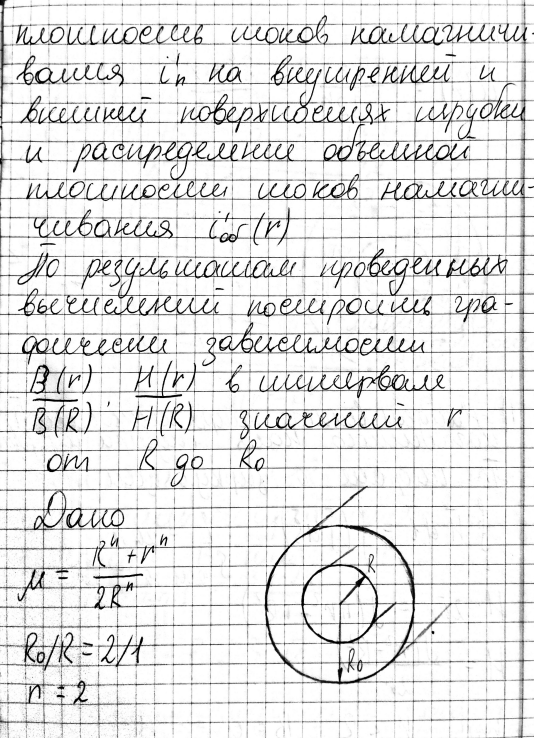 плотность токов намагничи-
вания i'п на внутренней и
внешней поверхностях трубки
и распределении объемной
плотности токов намагни-
чивания i'об(r)
По результатам проведенных
вычислений построить гра-
фически зависимости
B(r)/B(R), H(r)/H(R) в интервале
значений r
от R до R₀
Дано
μ = (Rⁿ + rⁿ)/(2Rⁿ)
R₀/R = 2/1
n = 2
R
R₀